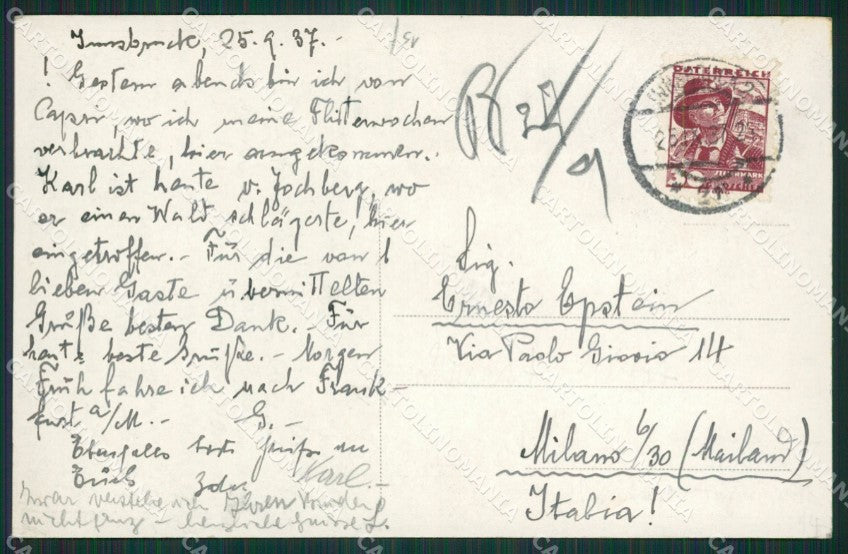 Innsbruck, 25.9.37.-
! Gestern abends bin ich von
Capri, wo ich meine Flitterwochen
verbrachte, hier angekommen.-
Karl ist heute v. Jochberg, wo
er einen Wald schlägerte, hier
eingetroffen.- Für die von l
lieben Gaste übermittelten
Grüße besten Dank. Für
heute beste Grüße.- Morgen
Früh fahre ich nach Frank-
furt a/M.- G.-
Ebenfalls beste Grüße an
Euch Karl.-
Zwar verstehe ich Ihren
nicht ganz - herzliche Grüsse L.
B 27/9
ÖSTERREICH
STEIERMARK
Sig.
Ernesto Epstein
Via Paolo Giovio 14
Milano 6/30 (Mailand)
Italia!
CARTOLINOMANIA